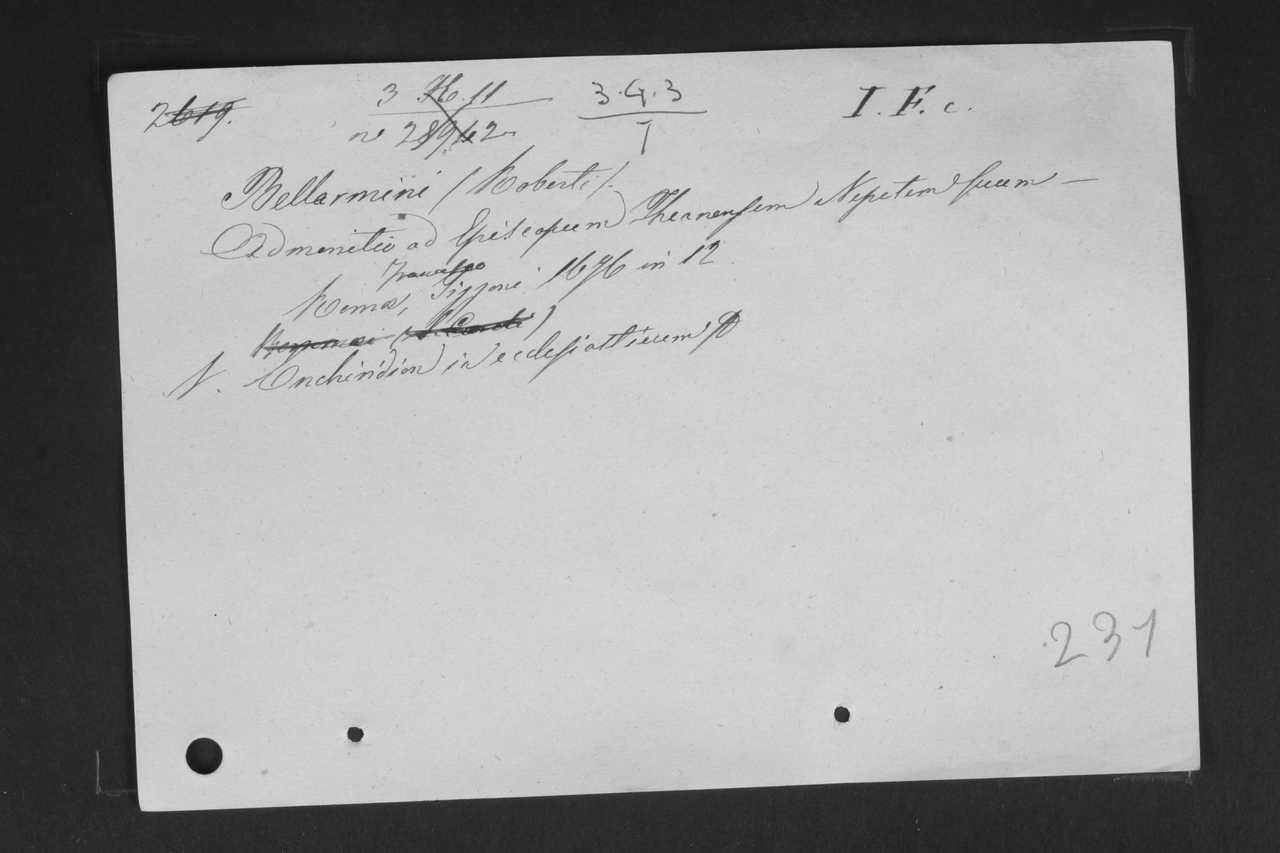 2619.
3.H.11
nº 28942
3.G.3
7
I.F.c.
Bellarmini (Roberti).
Admonitio ad Episcopum Theanensem Nepotem suum —
Francisco
Romæ, Tizzoni 1676 in 12
V. Enchiridion ecclesiasticum
231